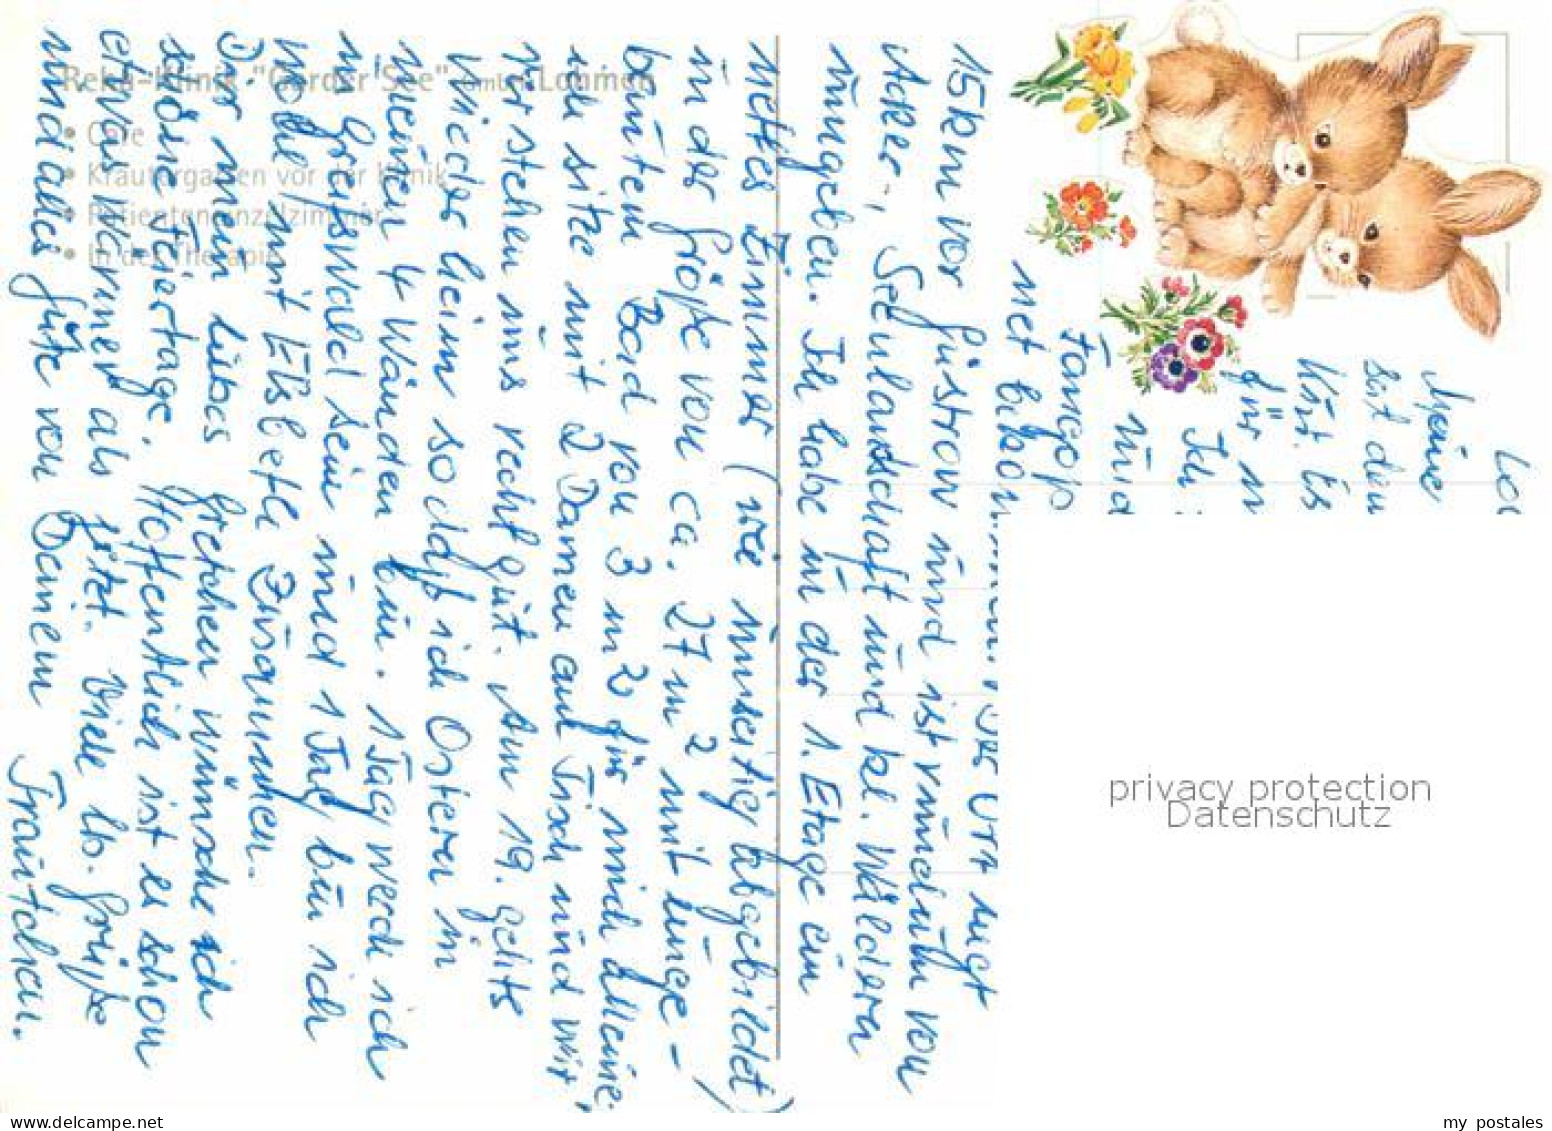 Reha-Klinik "Garder See" GmbH Lohmen
• Cafe
• Kräutergarten vor der Klinik
• Patienteneinzelzimmer
• In der Therapie
Meine
seit den
Kur. Es
für
Ich
und
Fangop
met bekom
liegt
15km vor Güstrow und ist rundum von
Acker-, Seenlandschaft und kl. Wäldern
umgeben. Ich habe in der 1. Etage ein
nettes Zimmer (wie umseitig abgebildet)
in der Größe von ca. 27 m² mit einge-
bautem Bad von 3 m² für mich alleine.
ich sitze mit 2 Damen am Tisch und wir
verstehen uns recht gut. Am 19. gehts
wieder heim sodaß ich Ostern in
meinen 4 Wänden bin. 1 Tag werde ich
in Greifswald sein und 1 Tag bin ich
wohl mit Elsbeth zusammen.
Dir mein liebes Gretchen wünsche ich
schöne Feiertage. Hoffentlich ist es schon
etwas wärmer als jetzt. Viele lb. Grüße
und alles Gute von Deinem Trautchen.
privacy protection
Datenschutz
my postales